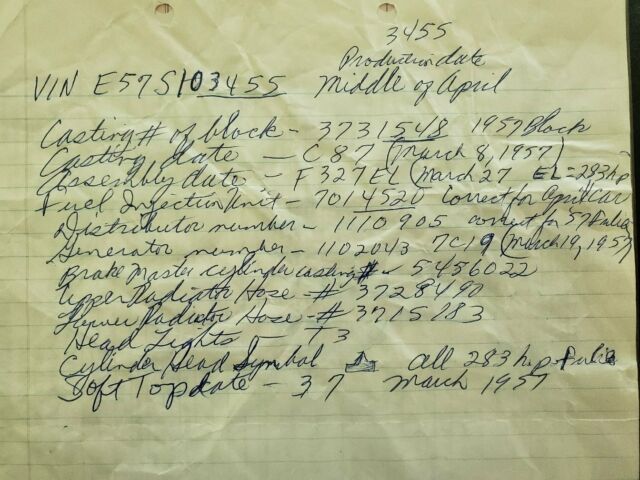 3455
Production date
VIN E57S103455 Middle of April
Casting # of block - 3731548 1957 Block
Casting date - C 8 7 (March 8, 1957)
Assembly date - F327EL (March 27 EL = 283 hp
Fuel Injection Unit - 7014520 correct for April Car
Distributor number - 1110905 correct for 57 Fuelie
Generator number - 1102043 7C19 (March 19, 1957)
Brake Master cylinder casting # - 5456022
Upper Radiator Hose - # 3728490
Lower Radiator Hose - # 3715183
Head Lights - T 3
Cylinder Head Symbol all 283 hp Fuelie
Soft Top date - 3 7 March 1957